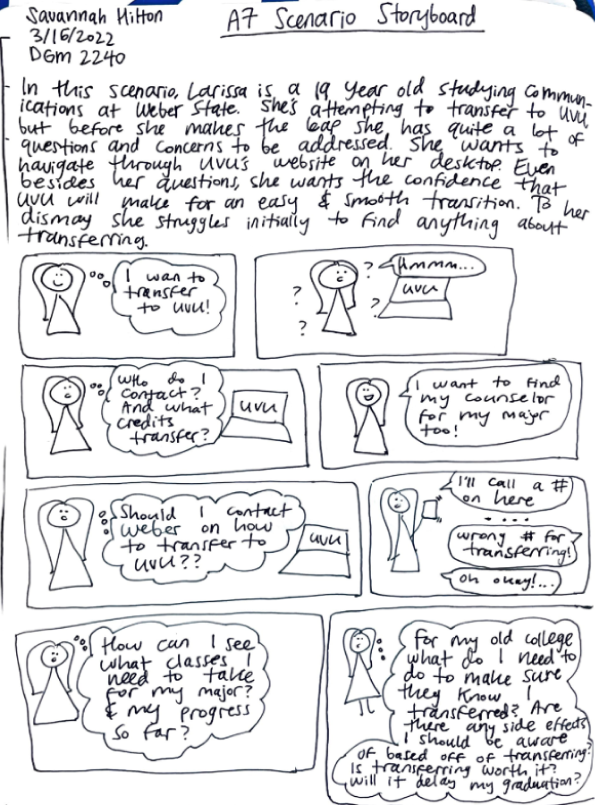 Savannah Hilton
A7 Scenario Storyboard
3/16/2022
DGM 2240
In this scenario, Larissa is a 19 year old studying Commun-
ications at Weber State. She's attempting to transfer to UVU,
but before she makes the leap she has quite a lot of
questions and concerns to be addressed. She wants to
navigate through UVU's website on her desktop. Even
besides her questions, she wants the confidence that
UVU will make for an easy & smooth transition. To her
dismay she struggles initially to find anything about
transferring.
I wan to
transfer
to UVU!
?
?
?
?
Hmmm...
UVU
Who do I
contact?
And what
credits
transfer?
UVU
I want to find
my counselor
for my major
too!
Should I contact
Weber on how
to transfer to
UVU??
UVU
I'll call a #
on here
....
wrong # for
transferring!
oh okay!...
How can I see
what classes I
need to take
for my major?
& my progress
so far?
For my old college
what do I need to
do to make sure
they know I
transferred? Are
there any side effects
I should be aware
of based off of transferring?
Is transferring worth it?
Will it delay my graduation?